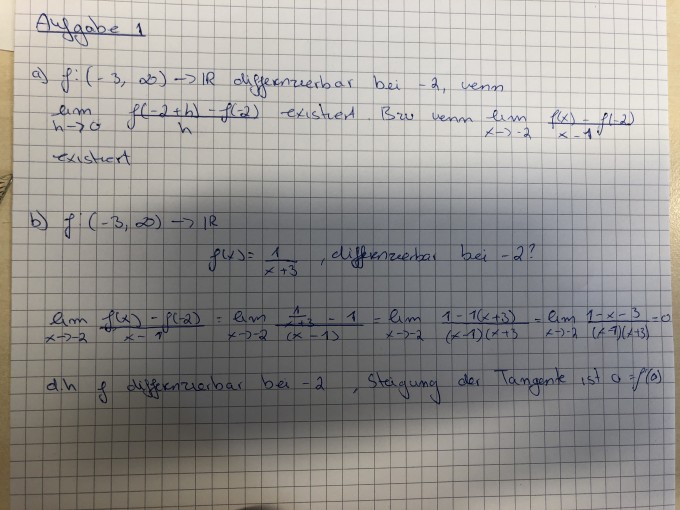 Aufgabe 1
a) f: (-3, ∞) → IR differnzierbar bei -2, wenn
lim h→0 f(-2+h) - f(-2) / h existiert. Bzw wenn lim x→-2 f(x) - f(-2) / x - 1
existiert
b) f: (-3, ∞) → IR
f(x) = 1 / x+3 , differnzierbar bei -2?
lim x→-2 f(x) - f(-2) / x - 1 = lim x→-2 1/x+3 - 1 / (x-1) = lim x→-2 1 - 1(x+3) / (x-1)(x+3 = lim x→-2 1-x-3 / (x-1)(x+3) = 0
d.h f differnzierbar bei -2 , Steigung der Tangente ist 0 = f'(0)